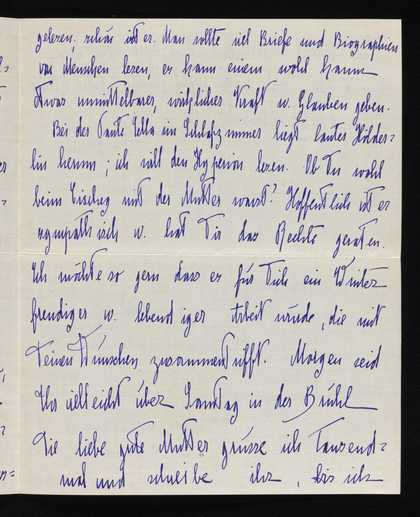 gelesen, schön ist er. Man sollte viel Briefe und Biographien
von Menschen lesen, es kann einem wohl kaum
etwas unmittelbarer, wirklicher Kraft u. Glauben geben.
Bei der Tante Lella im Schlafzimmer liegt lauter Hölder=
lin herum; ich will den Hyperion lesen. Ob Du wohl
beim mit der Mutter warst? Hoffentlich ist er
sympathisch u. hat Dir das Rechte geraten.
Ich möchte so gern dass es für Dich ein Winter
freudiger u. lebendiger Arbeit würde, die mit
Deinen Wünschen zusammentrifft. Morgen seid
Ihr vielleicht über Sonntag in der Brühl
Die liebe gute Mutter grüsse ich Tausend=
mal und schreibe ihr, bis ich